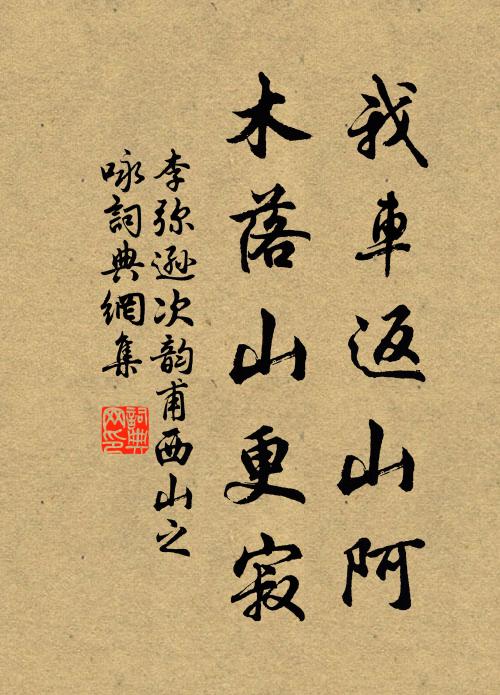 我車返山阿
木落山更寂
李弥遜次韵甫西山之
咏詞典網集
詞典網印